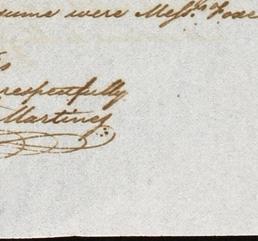 were Mess.rs Fox
respectfully
Martinez